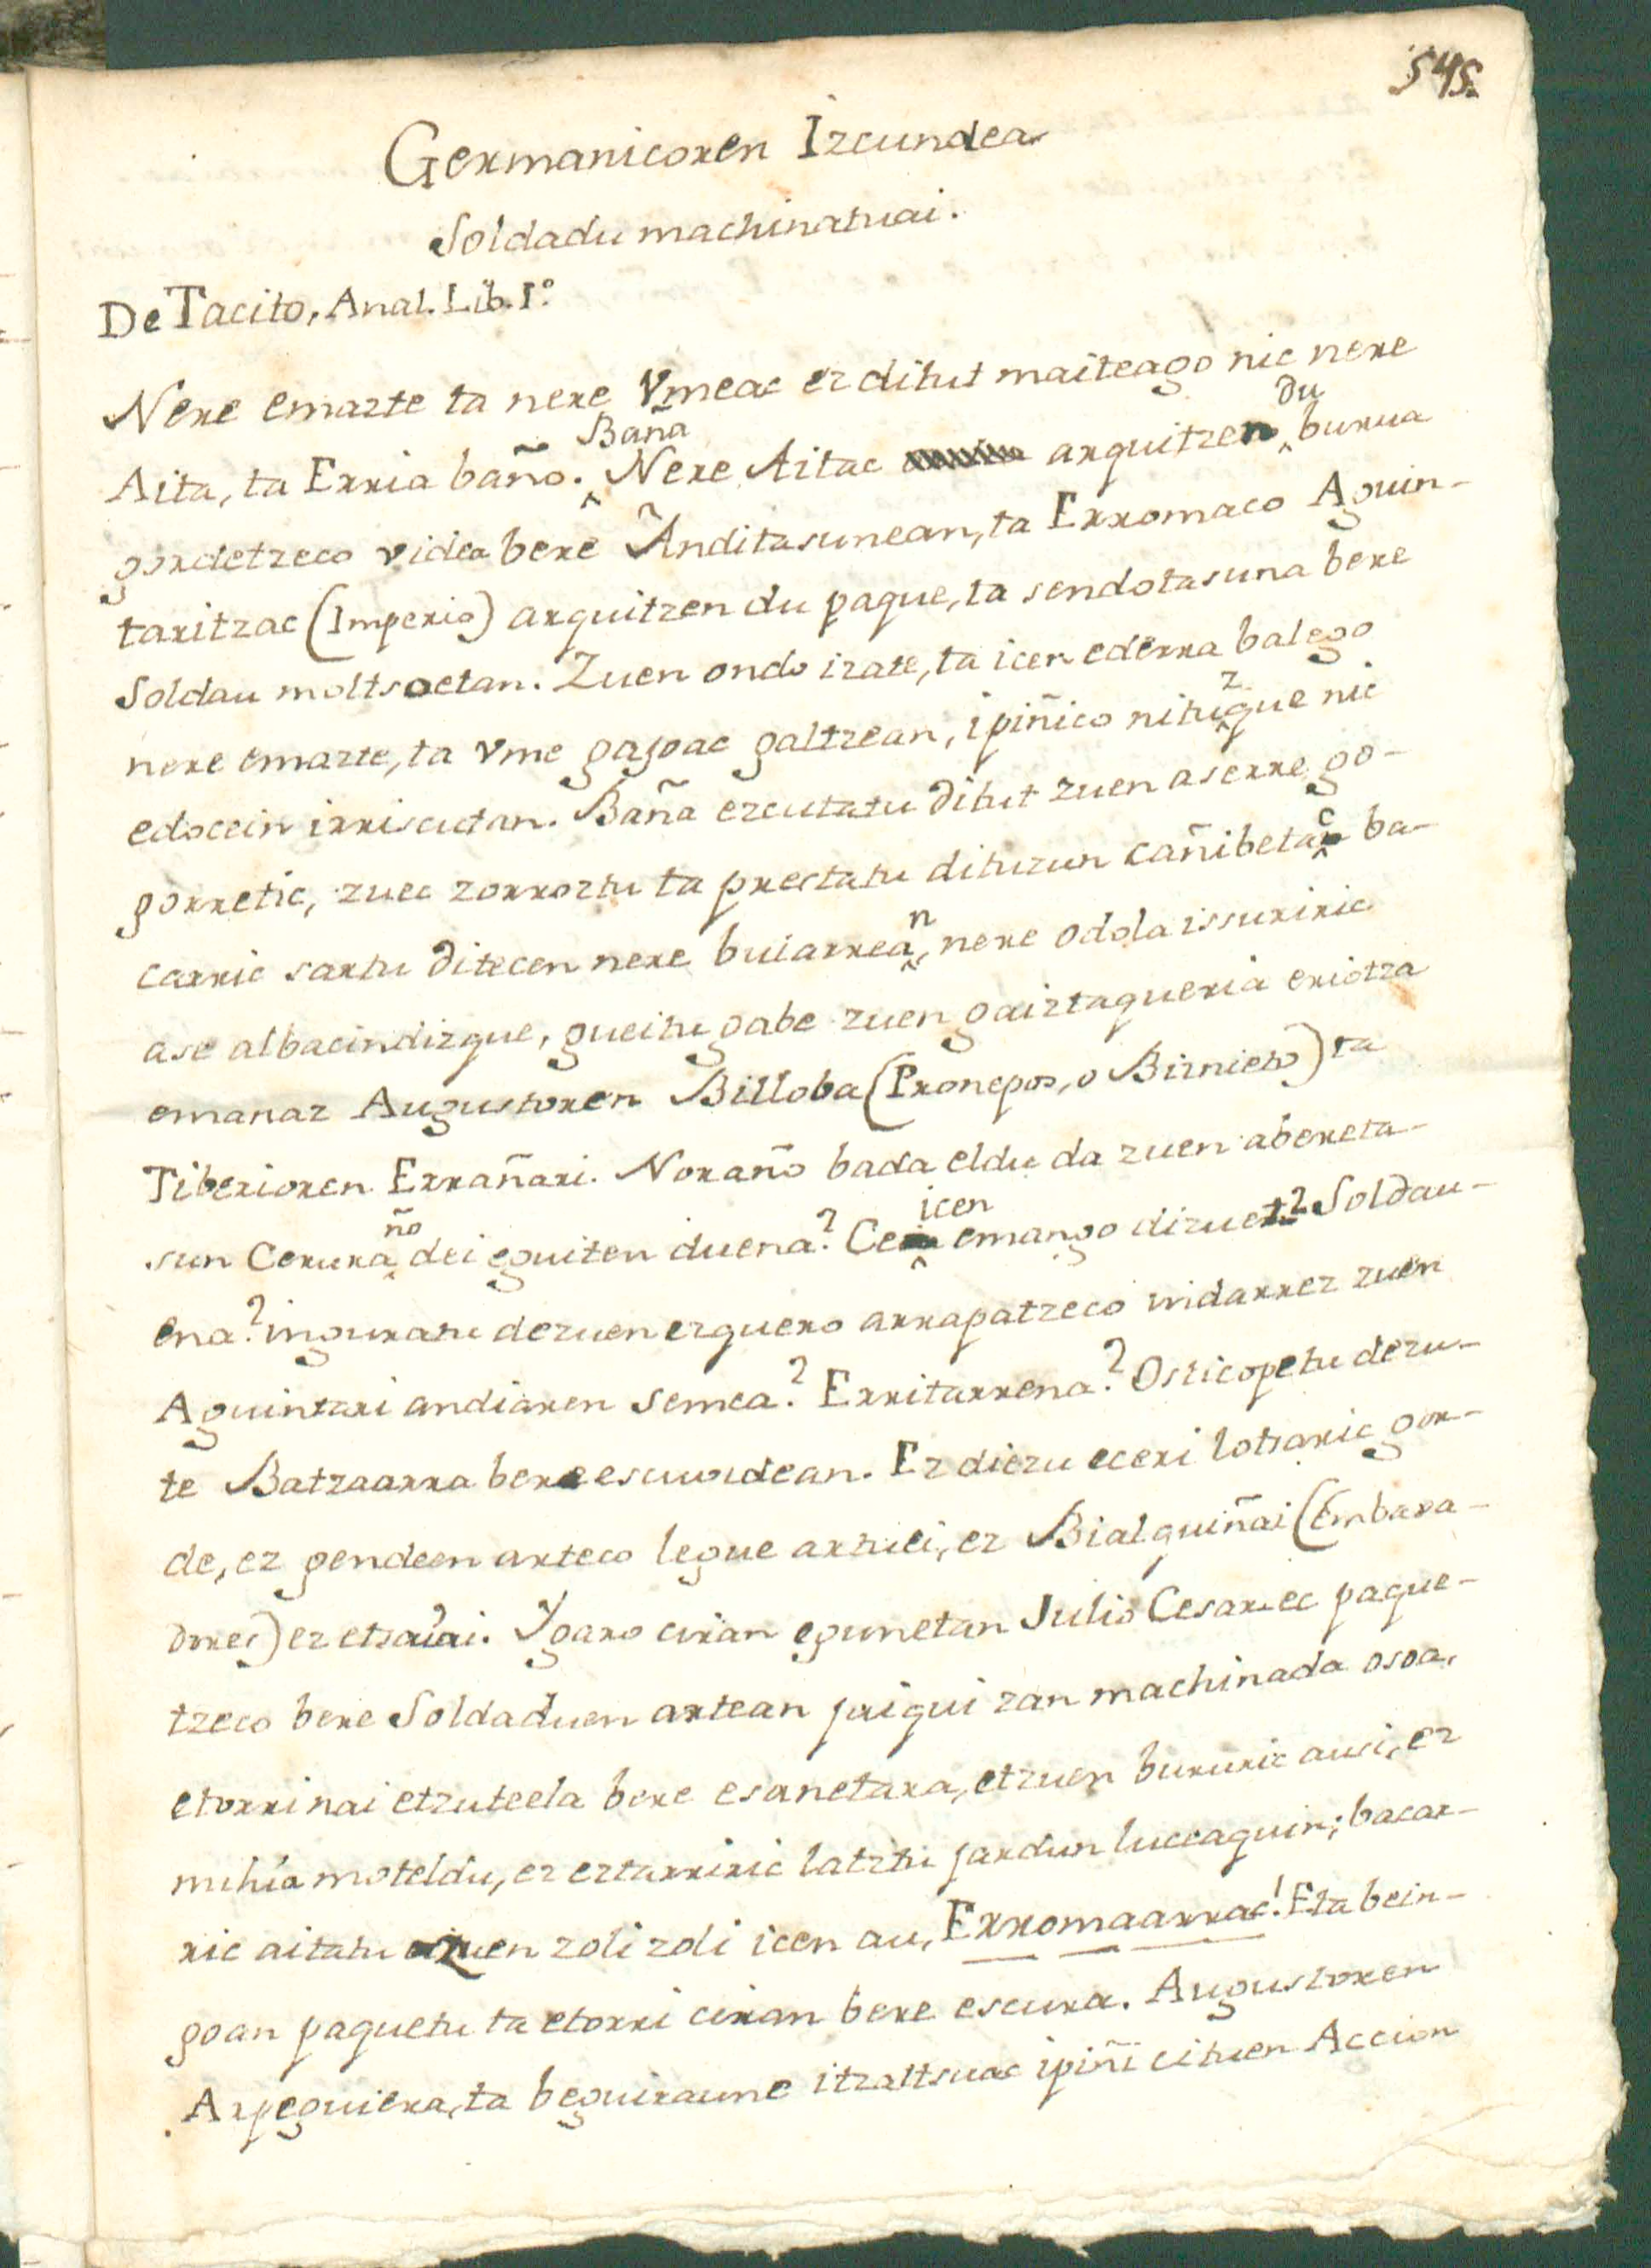 545.
Germanicoren Izcundea
Soldadu machinatuai.
De Tacito, Anal. Lib. Iº.
Nere emazte ta nere Vmeac ez ditut maiteago nic nere
Aita, ta Erria baño. Baña Nere Aitac arguitzen du burua
gordetzeco videa bere Anditasunean, ta Erromaco Aguin-
taritzac (Imperio) arguitzen du paque, ta sendotasuna bere
Soldau moltsoetan. Zuen ondo izate, ta icen ederra balego
nere emazte, ta vme gajoac galtzean, ipiñico nituzque nic
edocein irriscutan. Baña ezcutatu ditut zuen aserre go-
gorretic, zuec zorroztu ta prestatu dituzun cañibetac ba-
carric sartu ditecen nere bularrean, nere odola issuriric
ase albacindizque, gueitu gabe zuen gaiztaqueria eriotza
emanaz Augustoren Billoba (Pronepos, o Biznieto) ta
Tiberioren Errañari. Noraño bada eldu da zuen abereta-
sun Ceruraño dei eguiten duena? Ce icen emango dizuet? Soldau-
ena? inguratu dezuen ezquero arrapatzeco indarrez zuen
Aguintari andiaren semea? Erritarrena? Osticopetu dezu-
te Batzaarra bere escuudean. Ez diezu eceri lotsaric gor-
de, ez gendeen arteco legue artuei, ez Bialquiñai (Embaxa-
dores) ez etsaiai. Ygaro ciran egunetan Julio Cesarec paque-
tzeco bere Soldaduen artean jaigui zan machinada osoa,
etorri nai etzuteela bere esanetara, etzuen bururic ausi, ez
mihia moteldu, ez eztarriric latztu jardun luceaquin; bacar-
ric aitatu zuen zoli zoli icen au, Erromaarrac! Eta bein-
goan paquetu ta etorri ciran bere escura. Augustoren
Arpeguiera, ta beguiraune itzaltsuac ipiñi cituen Accion